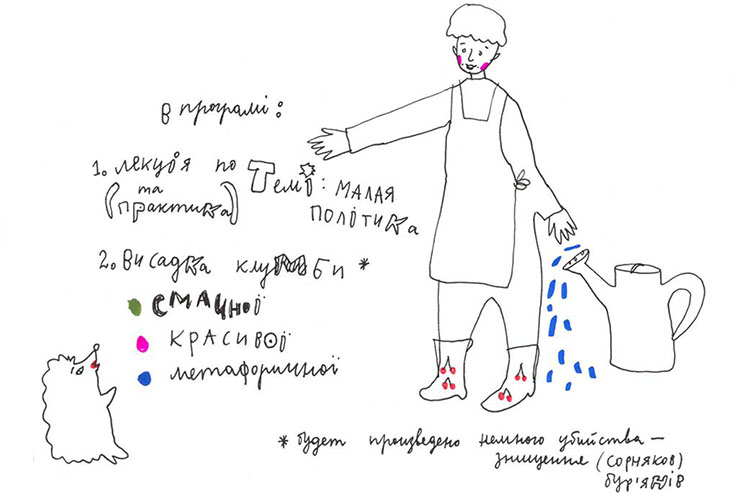 в програмі:
1. лекція по Темі: МАЛАЯ
(та практика) ПОЛІТИКА
2. висадка клумби *
СМАЧНОЇ
КРАСИВОЇ
метафоричної
* будет произведено немного убийства –
знищення (сорняков)
бур'янів